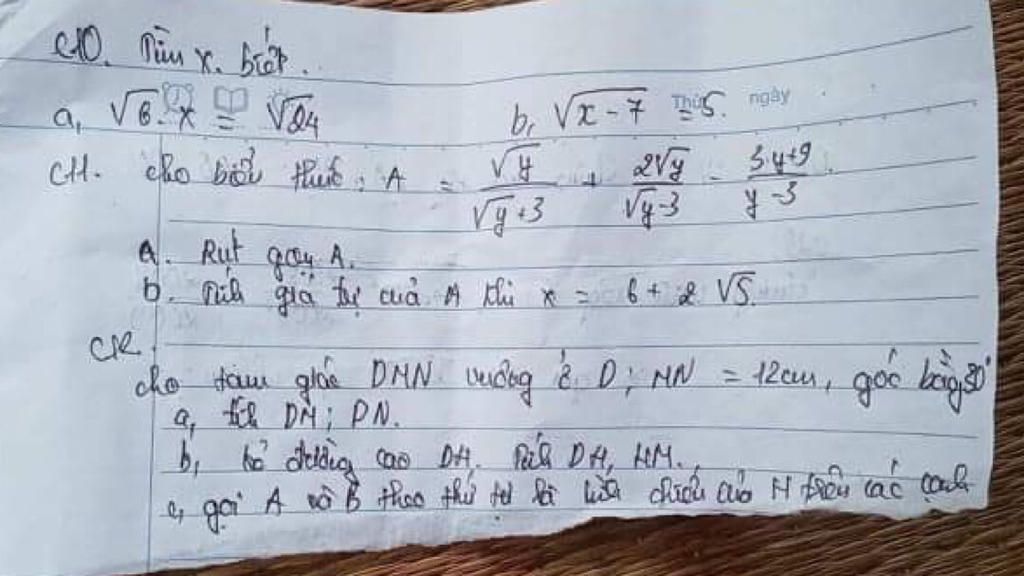 C10. Tìm x. biết.
a, √6. x = √24 b, √x - 7 = 5.
Thứ ngày
C11. cho biểu thức: A = √y / √y + 3 + 2√y / √y - 3 - 3y + 9 / y - 3.
a. Rút gọn A.
b. Tính giá trị của A khi x = 6 + 2√5.
C12.
cho tam giác DMN vuông ở D; MN = 12cm, góc bằng 30°
a, tính DM; DN.
b, kẻ đường cao DH. Tính DH, HM.
c, gọi A và B theo thứ tự là hình chiếu của H trên các cạnh